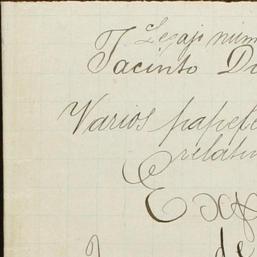 Legajo núm
Jacinto D
Varios papele
relativ
Exp
de